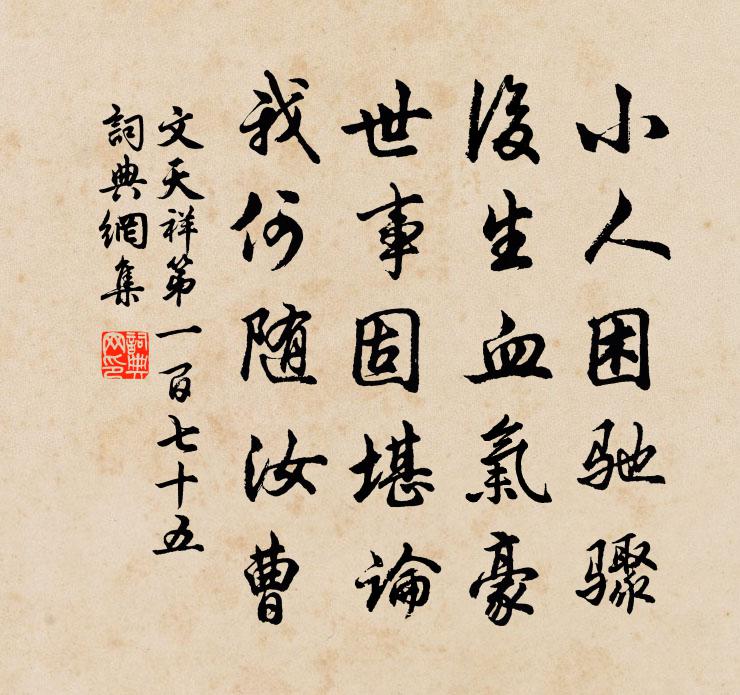 小人困驰骤
後生血氣豪
世事固堪論
我何随汝曹
文天祥第一百七十五
詞典網集
詞典網印